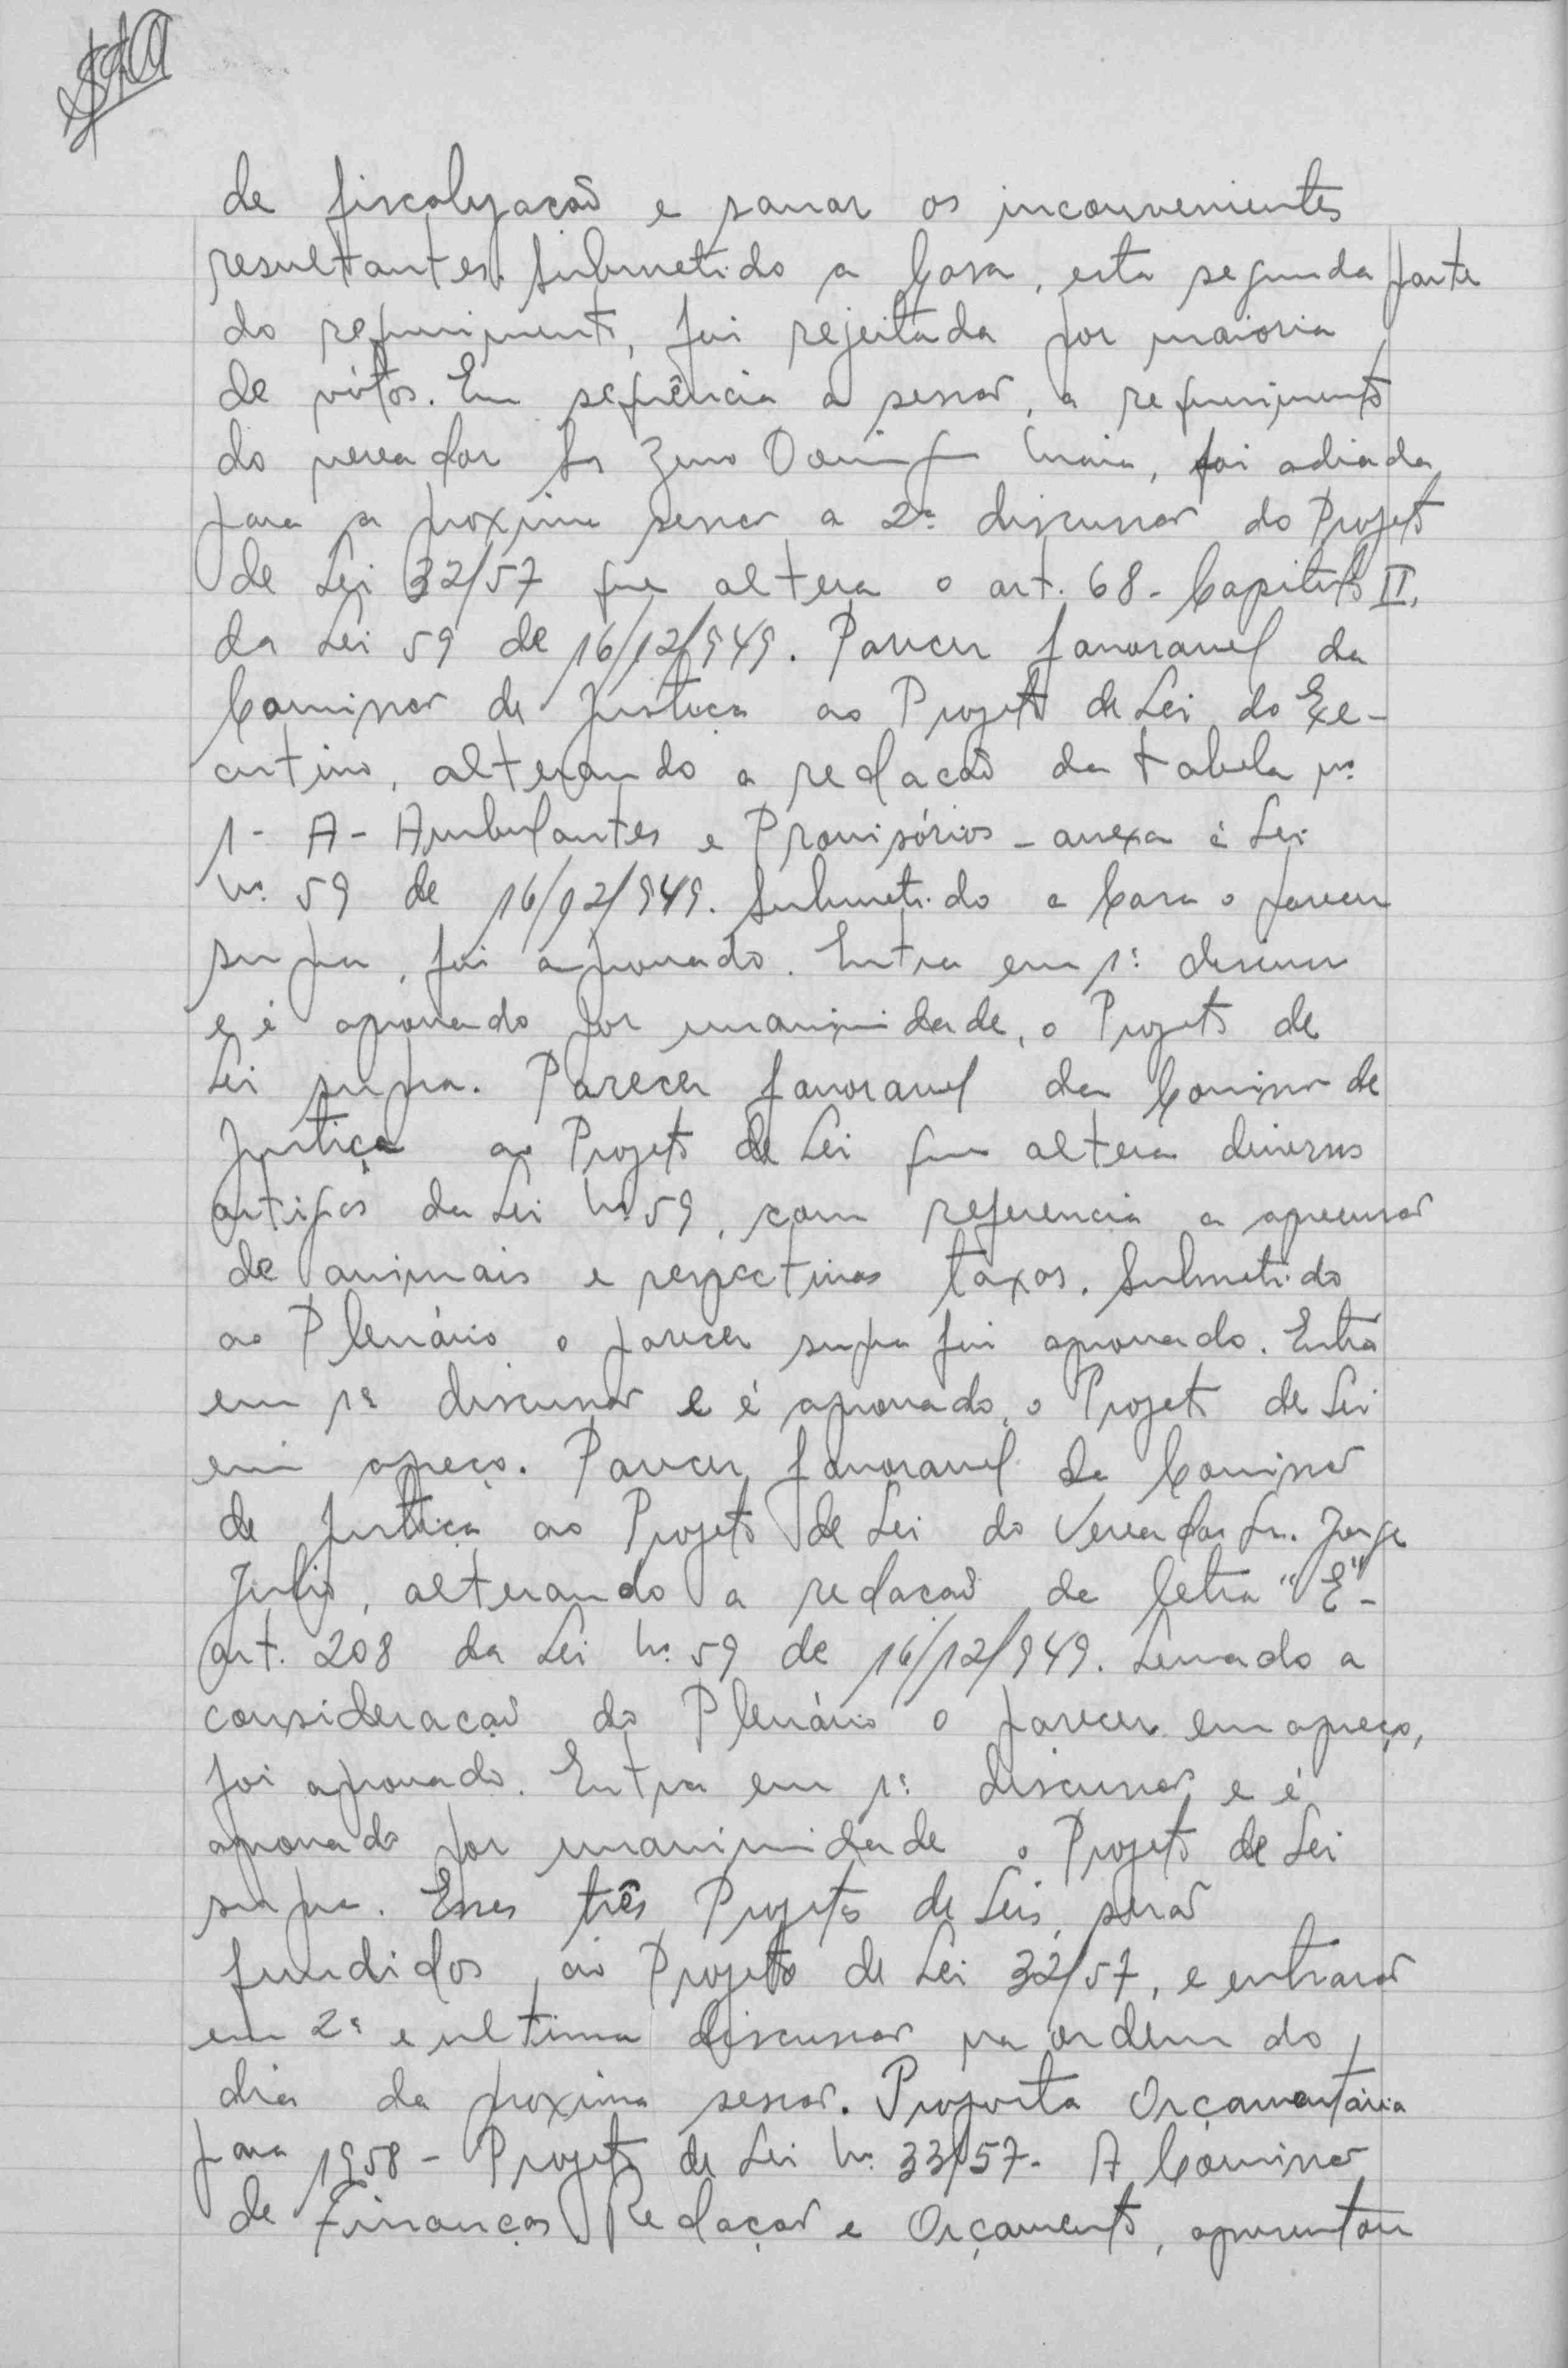 de fiscalização e sanar os inconvenientes
resultantes. Submetido a Casa, esta segunda parte
do requerimento, foi rejeitada por maioria
de vótos. Em seqüência a sessão, a requerimento
do vereador Sr Zeno Domingues Maia, foi adiada
para a proxima sessão a 2ª discussão do Projeto
de Lei 32/57 que altera o art. 68 - Capitulo II,
da Lei 59 de 16/12/949. Parecer favoravel da
Comissão de Justiça ao Projeto de Lei do Exe-
cutivo, alterando a redação da tabela nº
1 - A - Ambulantes e Provisórios - anexa á Lei
Nº 59 de 16/12/949. Submetido a Casa o parecer
supra, foi aprovado. Entra em 1ª discussão
e é aprovado por unanimidade, o Projeto de
Lei supra. Parecer favoravel da Comissão de
Justiça ao Projeto de Lei que altera diversos
artigos da Lei Nº 59, com referencia a apreensão
de animais e respectivas taxas. Submetido
ao Plenário o parecer supra foi aprovado. Entra
em 1ª discussão e é aprovado, o Projeto de Lei
em apreço. Parecer favoravel da Comissão
de Justiça ao Projeto de Lei do Vereador Sr. Jorge
Julio, alterando a redação da letra "E" -
art. 208 da Lei Nº 59 de 16/12/949. Levado a
consideração do Plenário o parecer em apreço,
foi aprovado. Entra em 1ª discussão e é
aprovado por unanimidade o Projeto de Lei
supra. Esses três Projetos de Leis, serão
fundidos ao Projeto de Lei 32/57, e entrarão
em 2ª e ultima discussão na ordem do
dia da proxima sessão. Proposta Orçamentária
para 1958 - Projeto de Lei Nº 33/57 - A Comissão
de Finanças Redação e Orçamento, apresentou